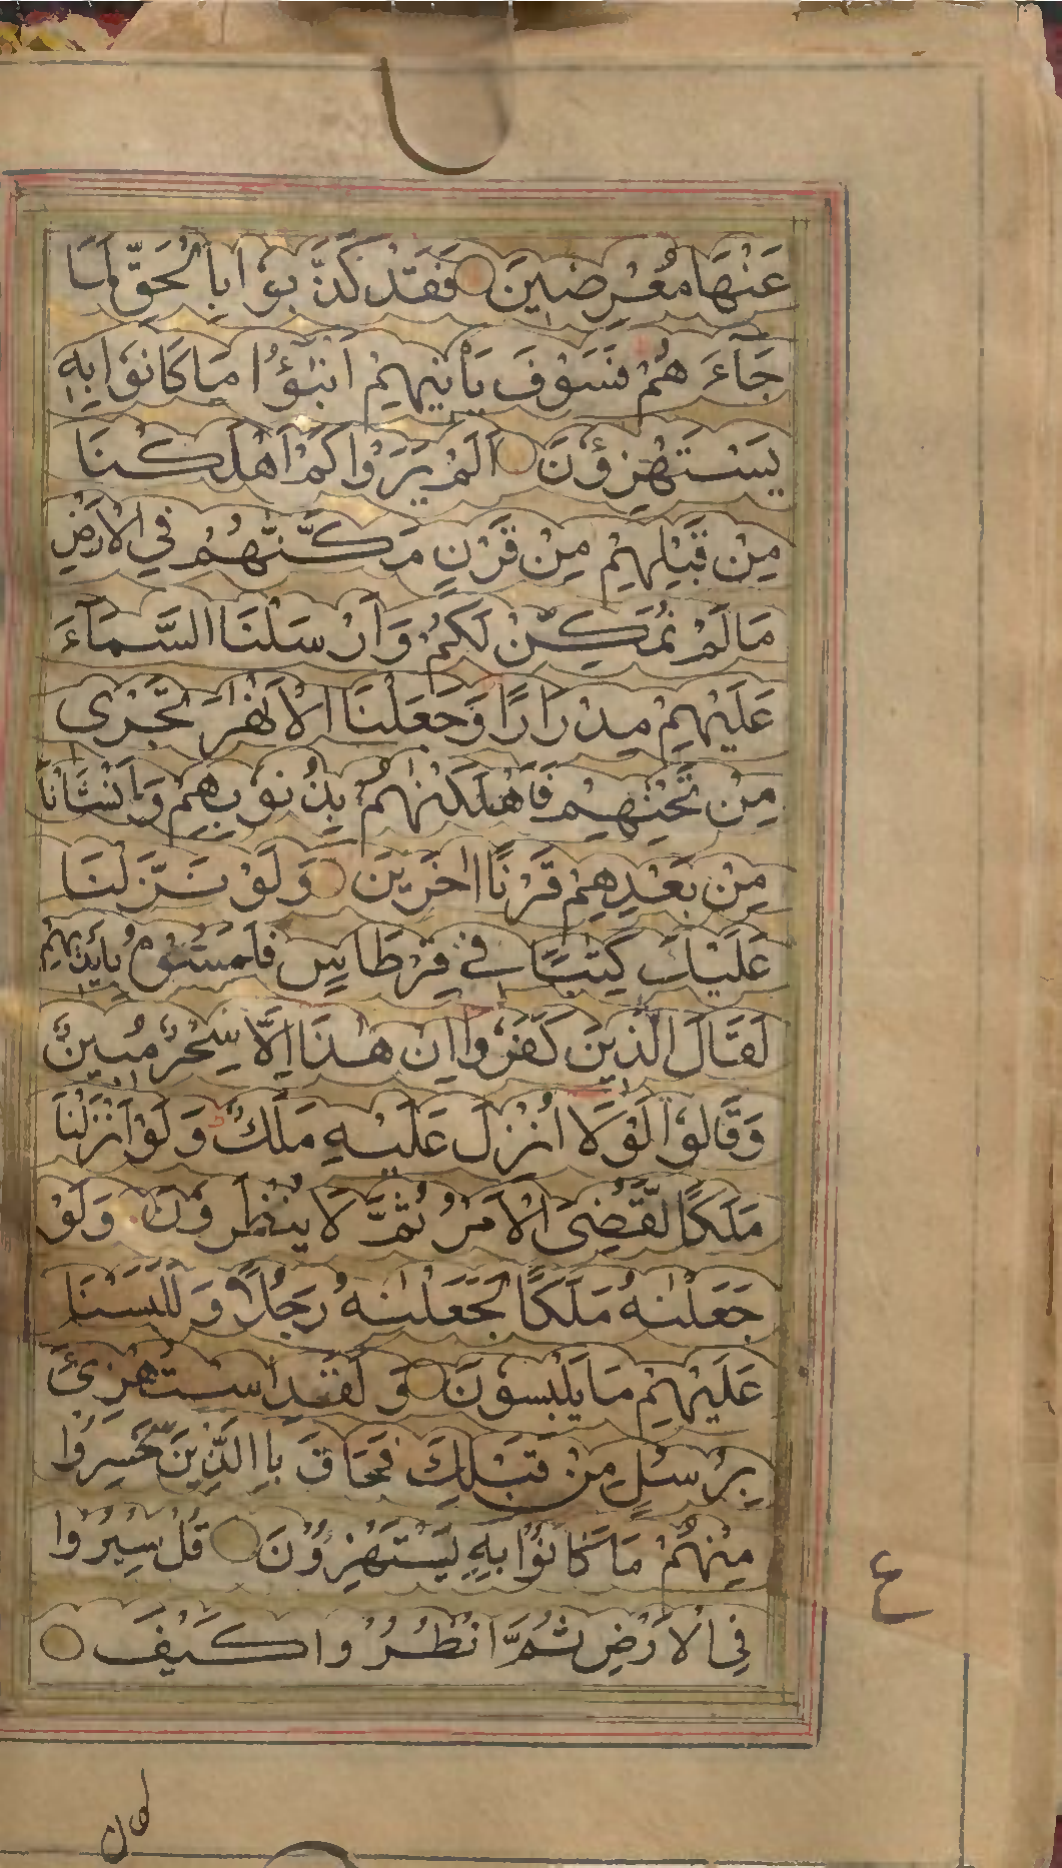 عَنْهَا مُعْرِضِينَ فَقَدْ كَذَّبُوْا بِالْحَقِّ لَمَّا
جَآءَ هُمْ فَسَوْفَ يَأْتِيهِمْ اَنْبٰٓؤُا مَا كَانُوْا بِهٖ
يَسْتَهْزِؤُنَ اَلَمْ يَرَوْا كَمْ اَهْلَكْنَا
مِنْ قَبْلِهِمْ مِنْ قَرْنٍ مَكَّنّٰهُمْ فِي الْاَرْضِ
مَا لَمْ نُمَكِّنْ لَكُمْ وَاَرْسَلْنَا السَّمَآءَ
عَلَيْهِمْ مِدْرَارًا وَجَعَلْنَا الْاَنْهٰرَ تَجْرِى
مِنْ تَحْتِهِمْ فَاَهْلَكْنٰهُمْ بِذُنُوْبِهِمْ وَاَنْشَأْنَا
مِنْ بَعْدِهِمْ قَرْنًا اٰخَرِيْنَ وَلَوْ نَزَّلْنَا
عَلَيْكَ كِتٰبًا فِيْ قِرْطَاسٍ فَلَمَسُوْهُ بِاَيْدِيْهِمْ
لَقَالَ الَّذِيْنَ كَفَرُوا اِنْ هٰذَا اِلَّا سِحْرٌ مُبِيْنٌ
وَقَالُوْا لَوْلَا اُنْزِلَ عَلَيْهِ مَلَكٌ وَلَوْ اَنْزَلْنَا
مَلَكًا لَّقُضِىَ الْاَمْرُ ثُمَّ لَا يُنْظَرُوْنَ وَلَوْ
جَعَلْنٰهُ مَلَكًا لَجَعَلْنٰهُ رَجُلًا وَلَلَبَسْنَا
عَلَيْهِمْ مَا يَلْبِسُوْنَ وَ لَقَدِ اسْتُهْزِئَ
بِرُسُلٍ مِنْ قَبْلِكَ فَحَاقَ بِاالَّذِيْنَ سَخِرُوْا
مِنْهُمْ مَا كَانُوْا بِهٖ يَسْتَهْزِؤُنَ قُلْ سِيْرُوْا
ع
فِي الْاَرْضِ ثُمَّ انْظُرُوا كَيْفَ
كان